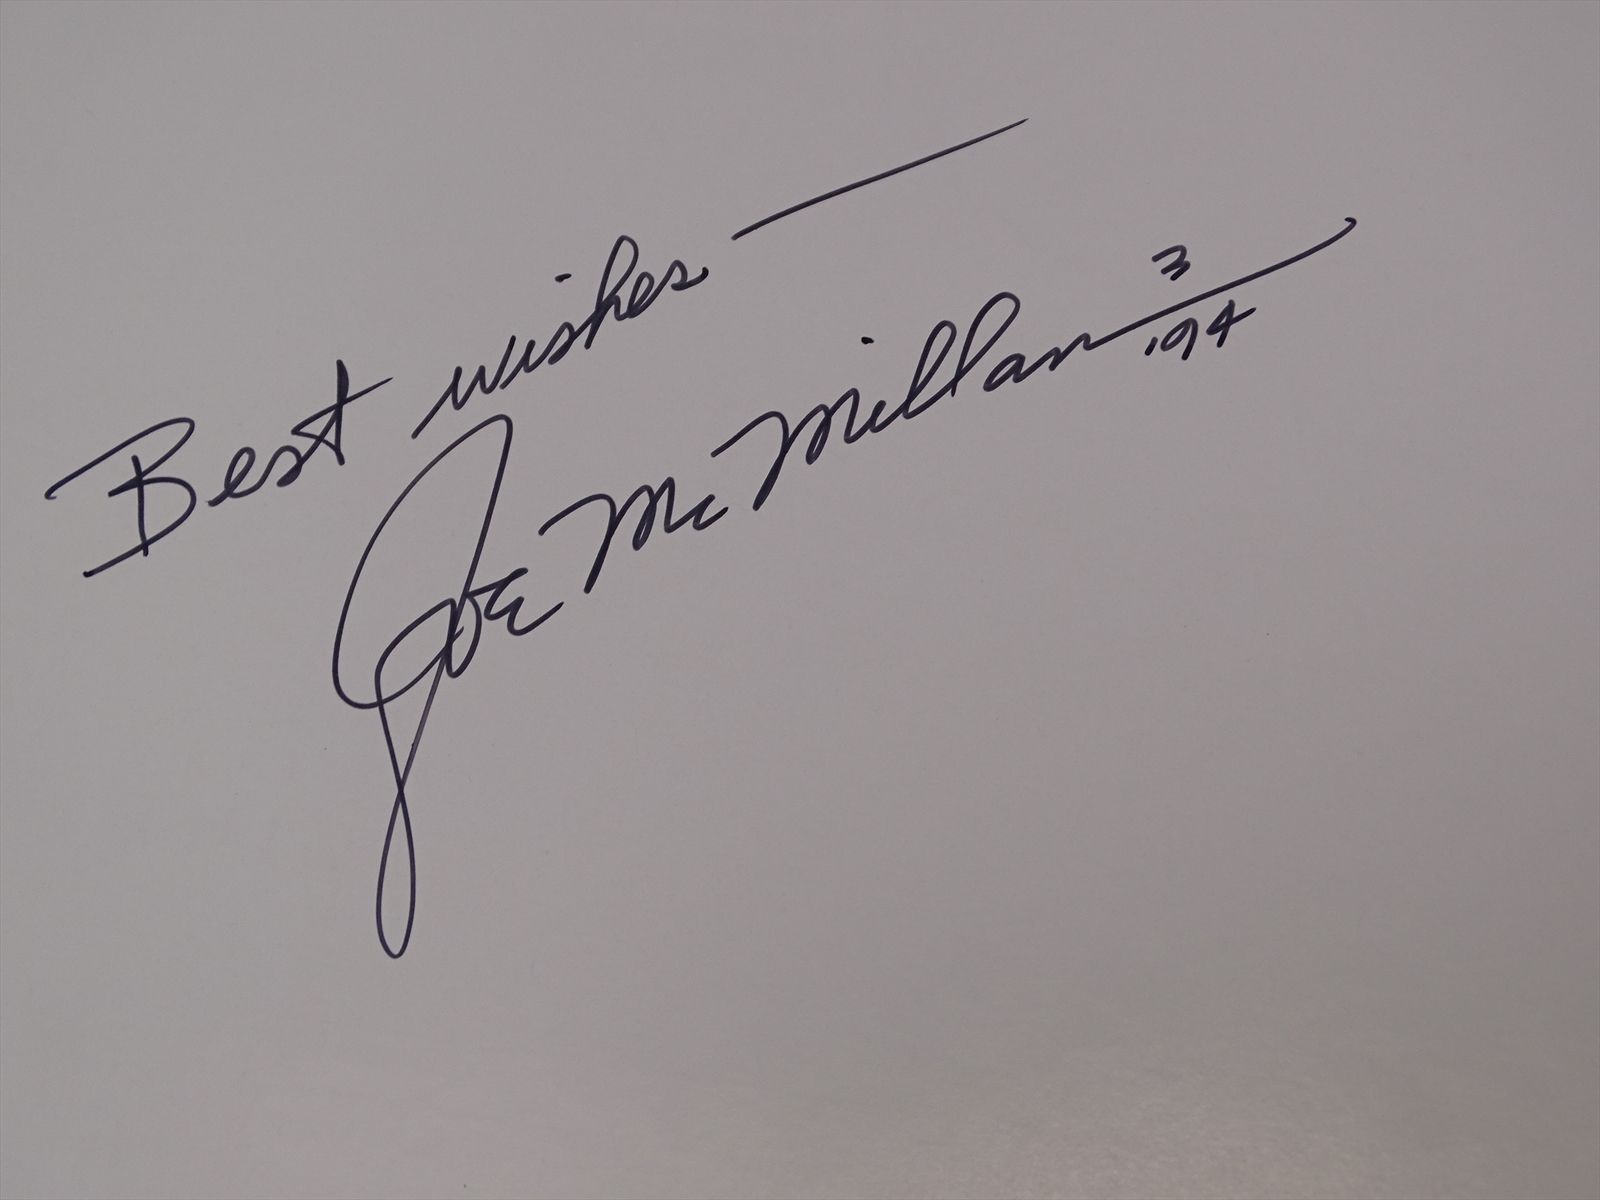 Best wishes —
Joe McMillan 3/'94